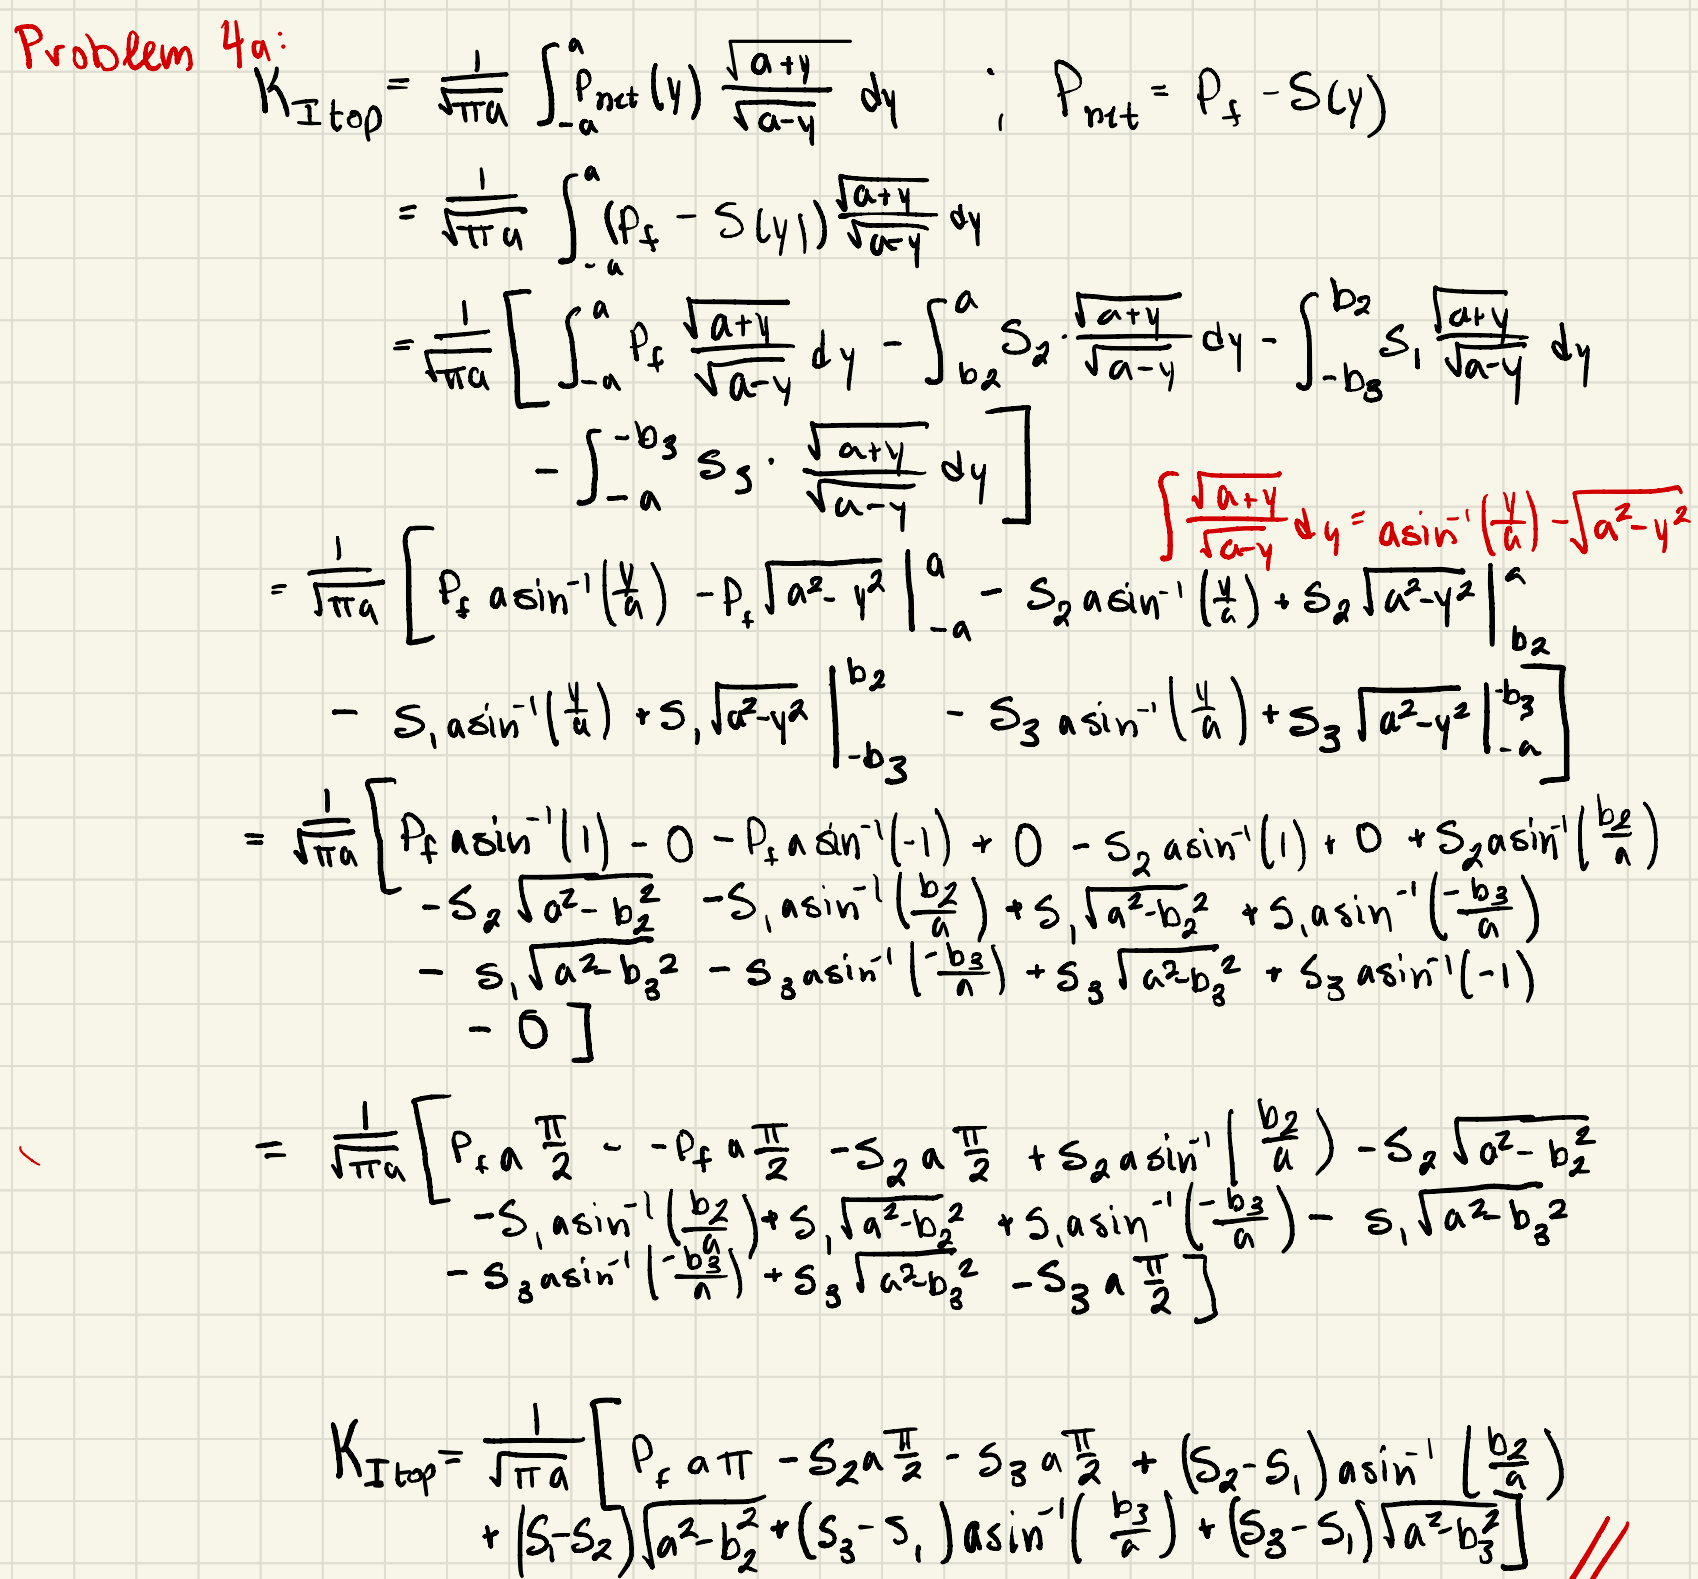 Problem 4a:
K_{I top} = \frac{1}{\sqrt{πa}} \int_{-a}^{a} P_{net}(y) \frac{\sqrt{a+y}}{\sqrt{a-y}} dy ; P_{net} = P_f - S(y)
= \frac{1}{\sqrt{πa}} \int_{-a}^{a} (P_f - S(y)) \frac{\sqrt{a+y}}{\sqrt{a-y}} dy
= \frac{1}{\sqrt{πa}} [ \int_{-a}^{a} P_f \frac{\sqrt{a+y}}{\sqrt{a-y}} dy - \int_{b_2}^{a} S_2 · \frac{\sqrt{a+y}}{\sqrt{a-y}} dy - \int_{-b_3}^{b_2} S_1 \frac{\sqrt{a+y}}{\sqrt{a-y}} dy
- \int_{-a}^{-b_3} S_3 · \frac{\sqrt{a+y}}{\sqrt{a-y}} dy ]
\int \frac{\sqrt{a+y}}{\sqrt{a-y}} dy = a sin^{-1}(\frac{y}{a}) - \sqrt{a^2-y^2}
= \frac{1}{\sqrt{πa}} [ P_f a sin^{-1}(\frac{y}{a}) - P_f \sqrt{a^2-y^2} |_{-a}^{a} - S_2 a sin^{-1}(\frac{y}{a}) + S_2 \sqrt{a^2-y^2} |_{b_2}^{a}
- S_1 a sin^{-1}(\frac{y}{a}) + S_1 \sqrt{a^2-y^2} |_{-b_3}^{b_2} - S_3 a sin^{-1}(\frac{y}{a}) + S_3 \sqrt{a^2-y^2} |_{-a}^{-b_3} ]
= \frac{1}{\sqrt{πa}} [ P_f a sin^{-1}(1) - 0 - P_f a sin^{-1}(-1) + 0 - S_2 a sin^{-1}(1) + 0 + S_2 a sin^{-1}(\frac{b_2}{a})
- S_2 \sqrt{a^2-b_2^2} - S_1 a sin^{-1}(\frac{b_2}{a}) + S_1 \sqrt{a^2-b_2^2} + S_1 a sin^{-1}(\frac{-b_3}{a})
- S_1 \sqrt{a^2-b_3^2} - S_3 a sin^{-1}(\frac{-b_3}{a}) + S_3 \sqrt{a^2-b_3^2} + S_3 a sin^{-1}(-1)
- 0 ]
= \frac{1}{\sqrt{πa}} [ P_f a \frac{π}{2} - -P_f a \frac{π}{2} - S_2 a \frac{π}{2} + S_2 a sin^{-1}(\frac{b_2}{a}) - S_2 \sqrt{a^2-b_2^2}
- S_1 a sin^{-1}(\frac{b_2}{a}) + S_1 \sqrt{a^2-b_2^2} + S_1 a sin^{-1}(\frac{-b_3}{a}) - S_1 \sqrt{a^2-b_3^2}
- S_3 a sin^{-1}(\frac{-b_3}{a}) + S_3 \sqrt{a^2-b_3^2} - S_3 a \frac{π}{2} ]
K_{I top} = \frac{1}{\sqrt{πa}} [ P_f a π - S_2 a \frac{π}{2} - S_3 a \frac{π}{2} + (S_2-S_1) a sin^{-1}(\frac{b_2}{a})
+ (S_1-S_2) \sqrt{a^2-b_2^2} + (S_3-S_1) a sin^{-1}(\frac{b_3}{a}) + (S_3-S_1) \sqrt{a^2-b_3^2} ] //